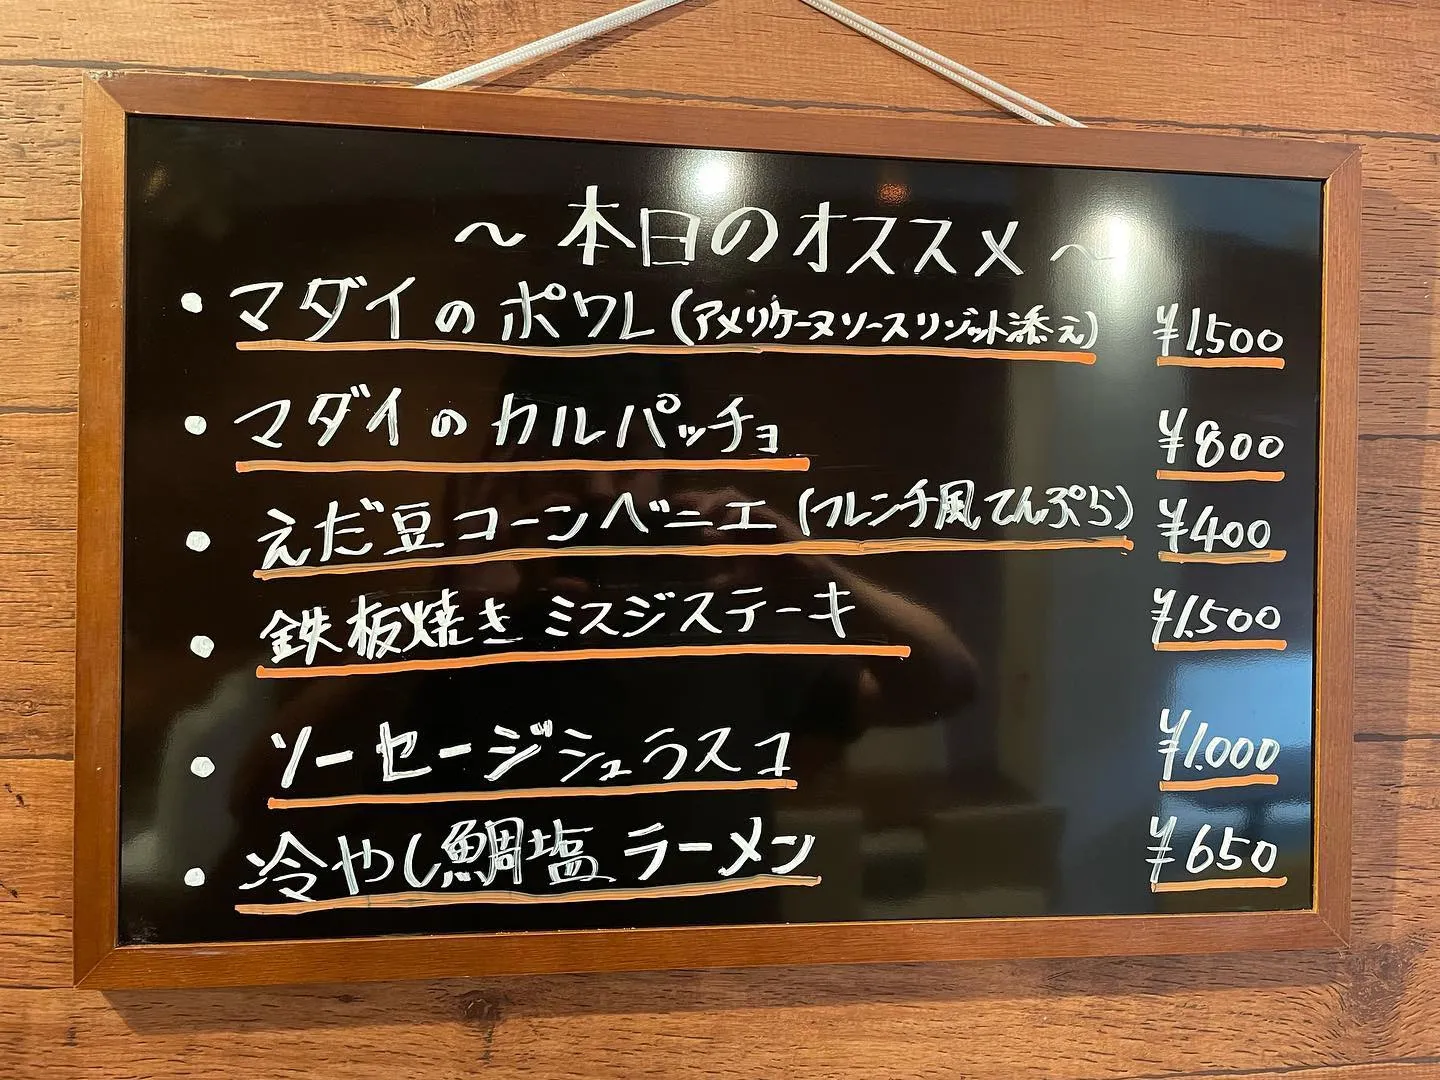 ～本日のオススメ～
・マダイのポワレ(アメリケーヌソースリゾット添え) ¥1,500
・マダイのカルパッチョ ¥800
・えだ豆コーンベニエ(フレンチ風てんぷら) ¥400
・鉄板焼きミスジステーキ ¥1,500
・ソーセージシュラスコ ¥1,000
・冷やし鯛塩ラーメン ¥650